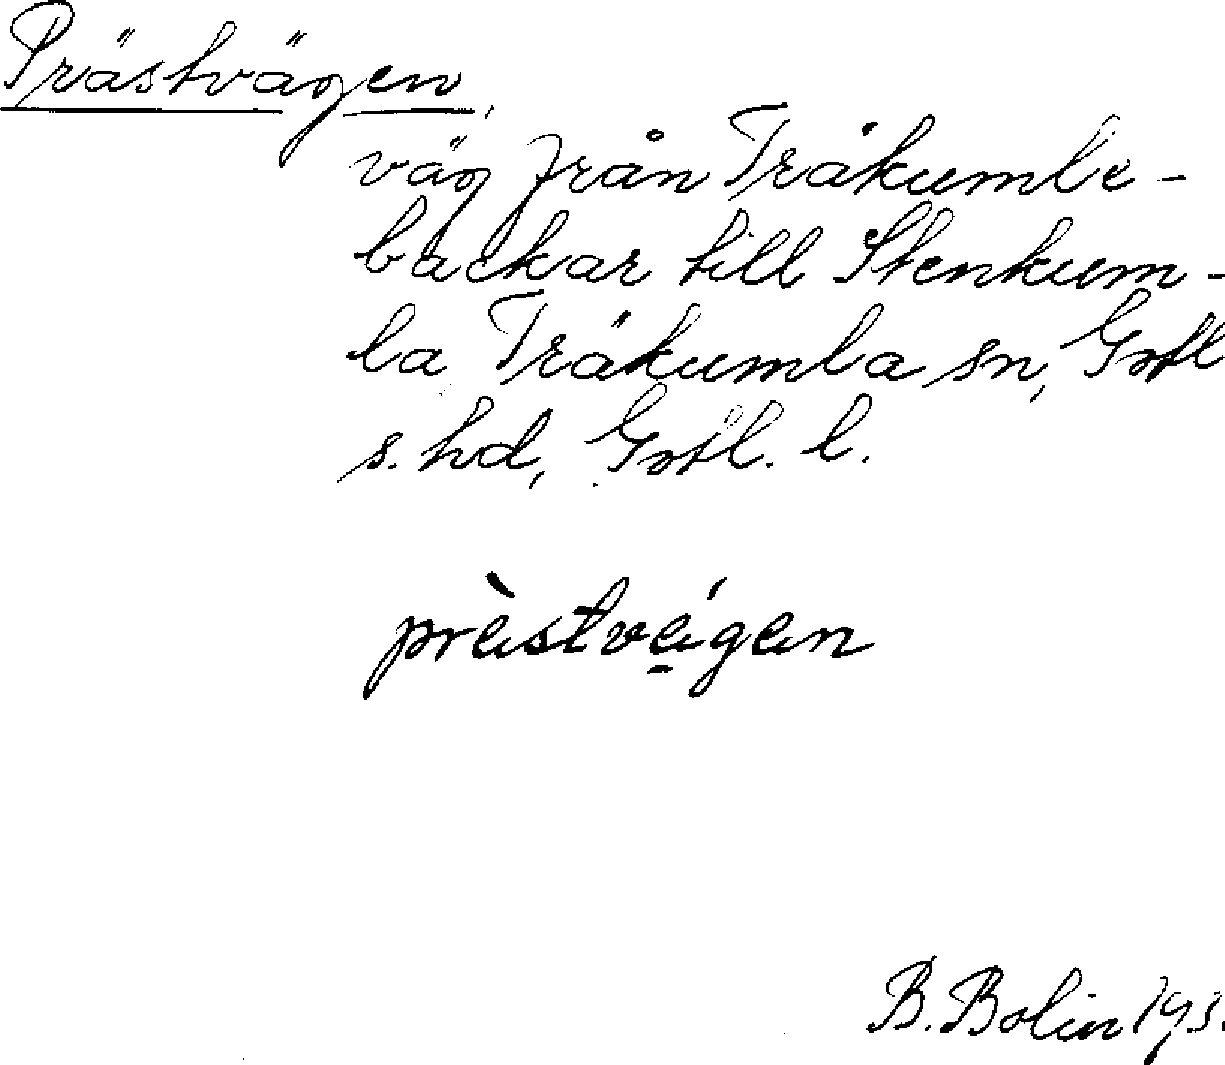 Prästvägen,
väg från Träkumle-
backar till Stenkum-
la, Träkumla sn, Gotl
s. hd, Gotl. l.
prèstvẹígen
B. Bolin 193.